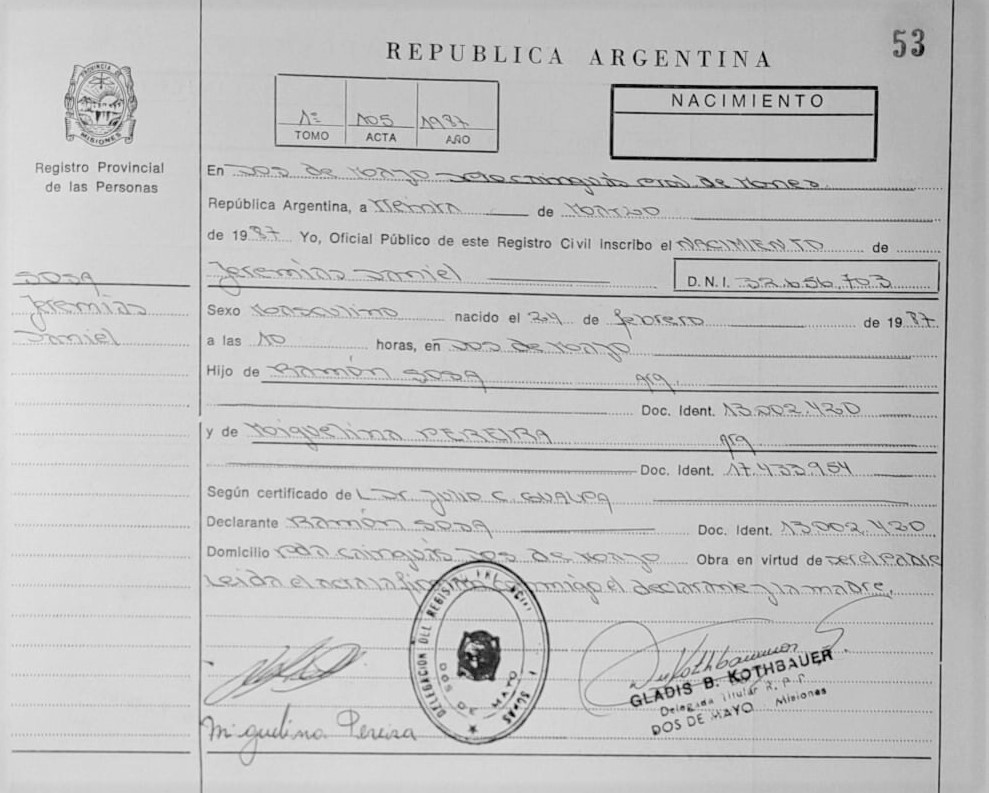 53
REPUBLICA ARGENTINA
PROVINCIA DE
MISIONES
Registro Provincial
de las Personas
1º 105 1987
TOMO ACTA AÑO
NACIMIENTO
En Dos de Mayo
República Argentina, a Treinta de Marzo
de 1987 Yo, Oficial Público de este Registro Civil inscribo el NACIMIENTO de
Jeremias Daniel D.N.I. 32.656.703
SOSA
Jeremias
Daniel
Sexo Masculino nacido el 24 de febrero de 1987.
a las 10 horas, en Dos de Mayo
Hijo de Ramón SOSA arg.
Doc. Ident. 13.002.420
y de Miguelina PEREIRA arg
Doc. Ident. 17.433.954
Según certificado de L Dr. Julio C.
Declarante Ramón SOSA Doc. Ident. 13.002.420
Domicilio Dos de Mayo Obra en virtud de ser el Padre
Leida el acta la firma conmigo el declarante y la madre.
DELEGACION DEL REGISTRO
DOS DE MAYO
Miguelina Pereira
GLADIS B. KOTHBAUER
Delegada Titular R. P. P.
DOS DE MAYO Misiones